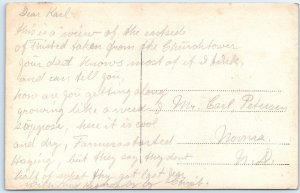 Dear Karl.
This is a view of the eastend
of taken from the Churchtower
your dad knows most of it I think
and can tell you,
how are you getting along
growing like a weed I
suppose, here it is cool
and dry, Farmers started
Haying, but they say they dont
half of what they got last year
by
Mr. Carl Petersen
Norma
N. D.